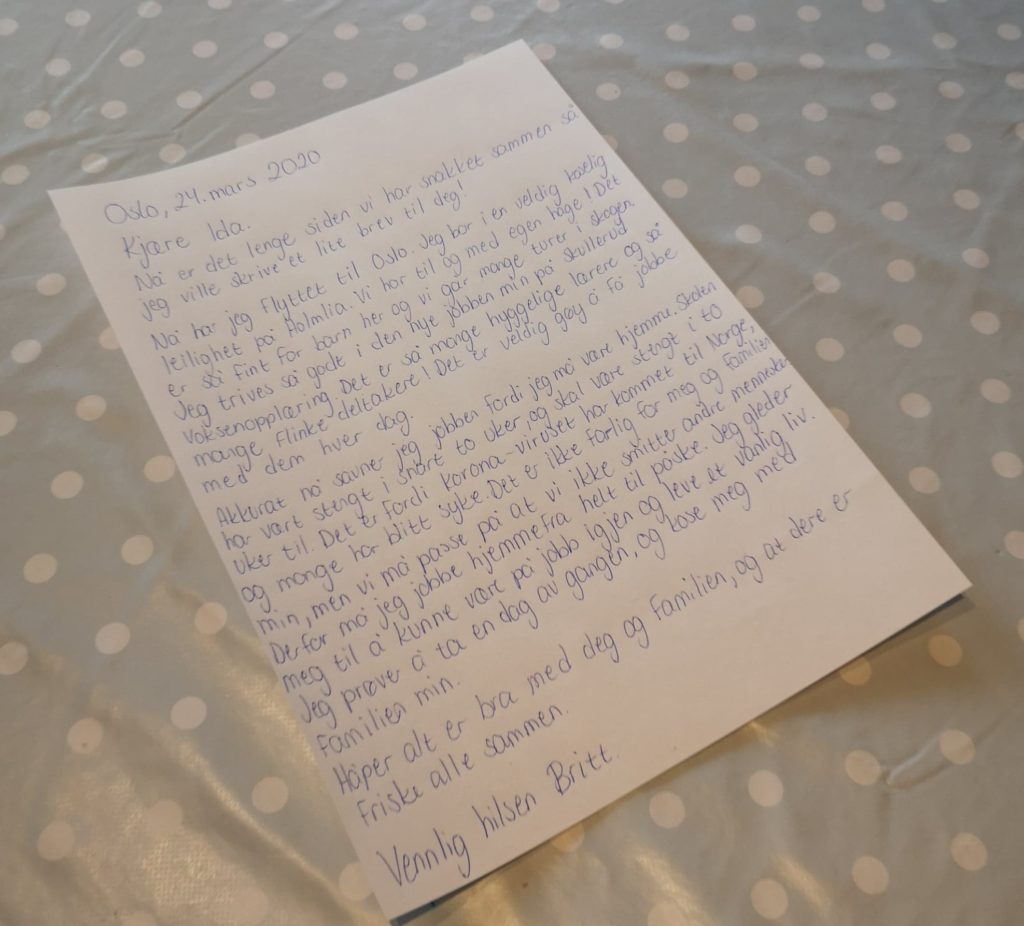 Oslo, 24. mars 2020
Kjære Ida.
Nå er det lenge siden vi har snakket sammen så
jeg ville skrive et lite brev til deg!
Nå har jeg flyttet til Oslo. Jeg bor i en veldig koselig
leilighet på Holmlia. Vi har til og med egen hage! Det
er så fint for barn her og vi går mange turer i skogen.
Jeg trives så godt i den nye jobben min på Skullerud
voksenopplæring. Det er så mange hyggelige lærere og så
mange flinke deltakere! Det er veldig gøy å få jobbe
med dem hver dag.
Akkurat nå savner jeg jobben fordi jeg må være hjemme. Skolen
har vært stengt i snart to uker, og skal være stengt i to
uker til. Det er fordi korona-viruset har kommet til Norge,
og mange har blitt syke. Det er ikke farlig for meg og familien
min, men vi må passe på at vi ikke smitter andre mennesker.
Derfor må jeg jobbe hjemmefra helt til påske. Jeg gleder
meg til å kunne være på jobb igjen og leve et vanlig liv.
Jeg prøver å ta en dag av gangen, og kose meg med
familien min.
Håper alt er bra med deg og familien, og at dere er
friske alle sammen.
Vennlig hilsen Britt.